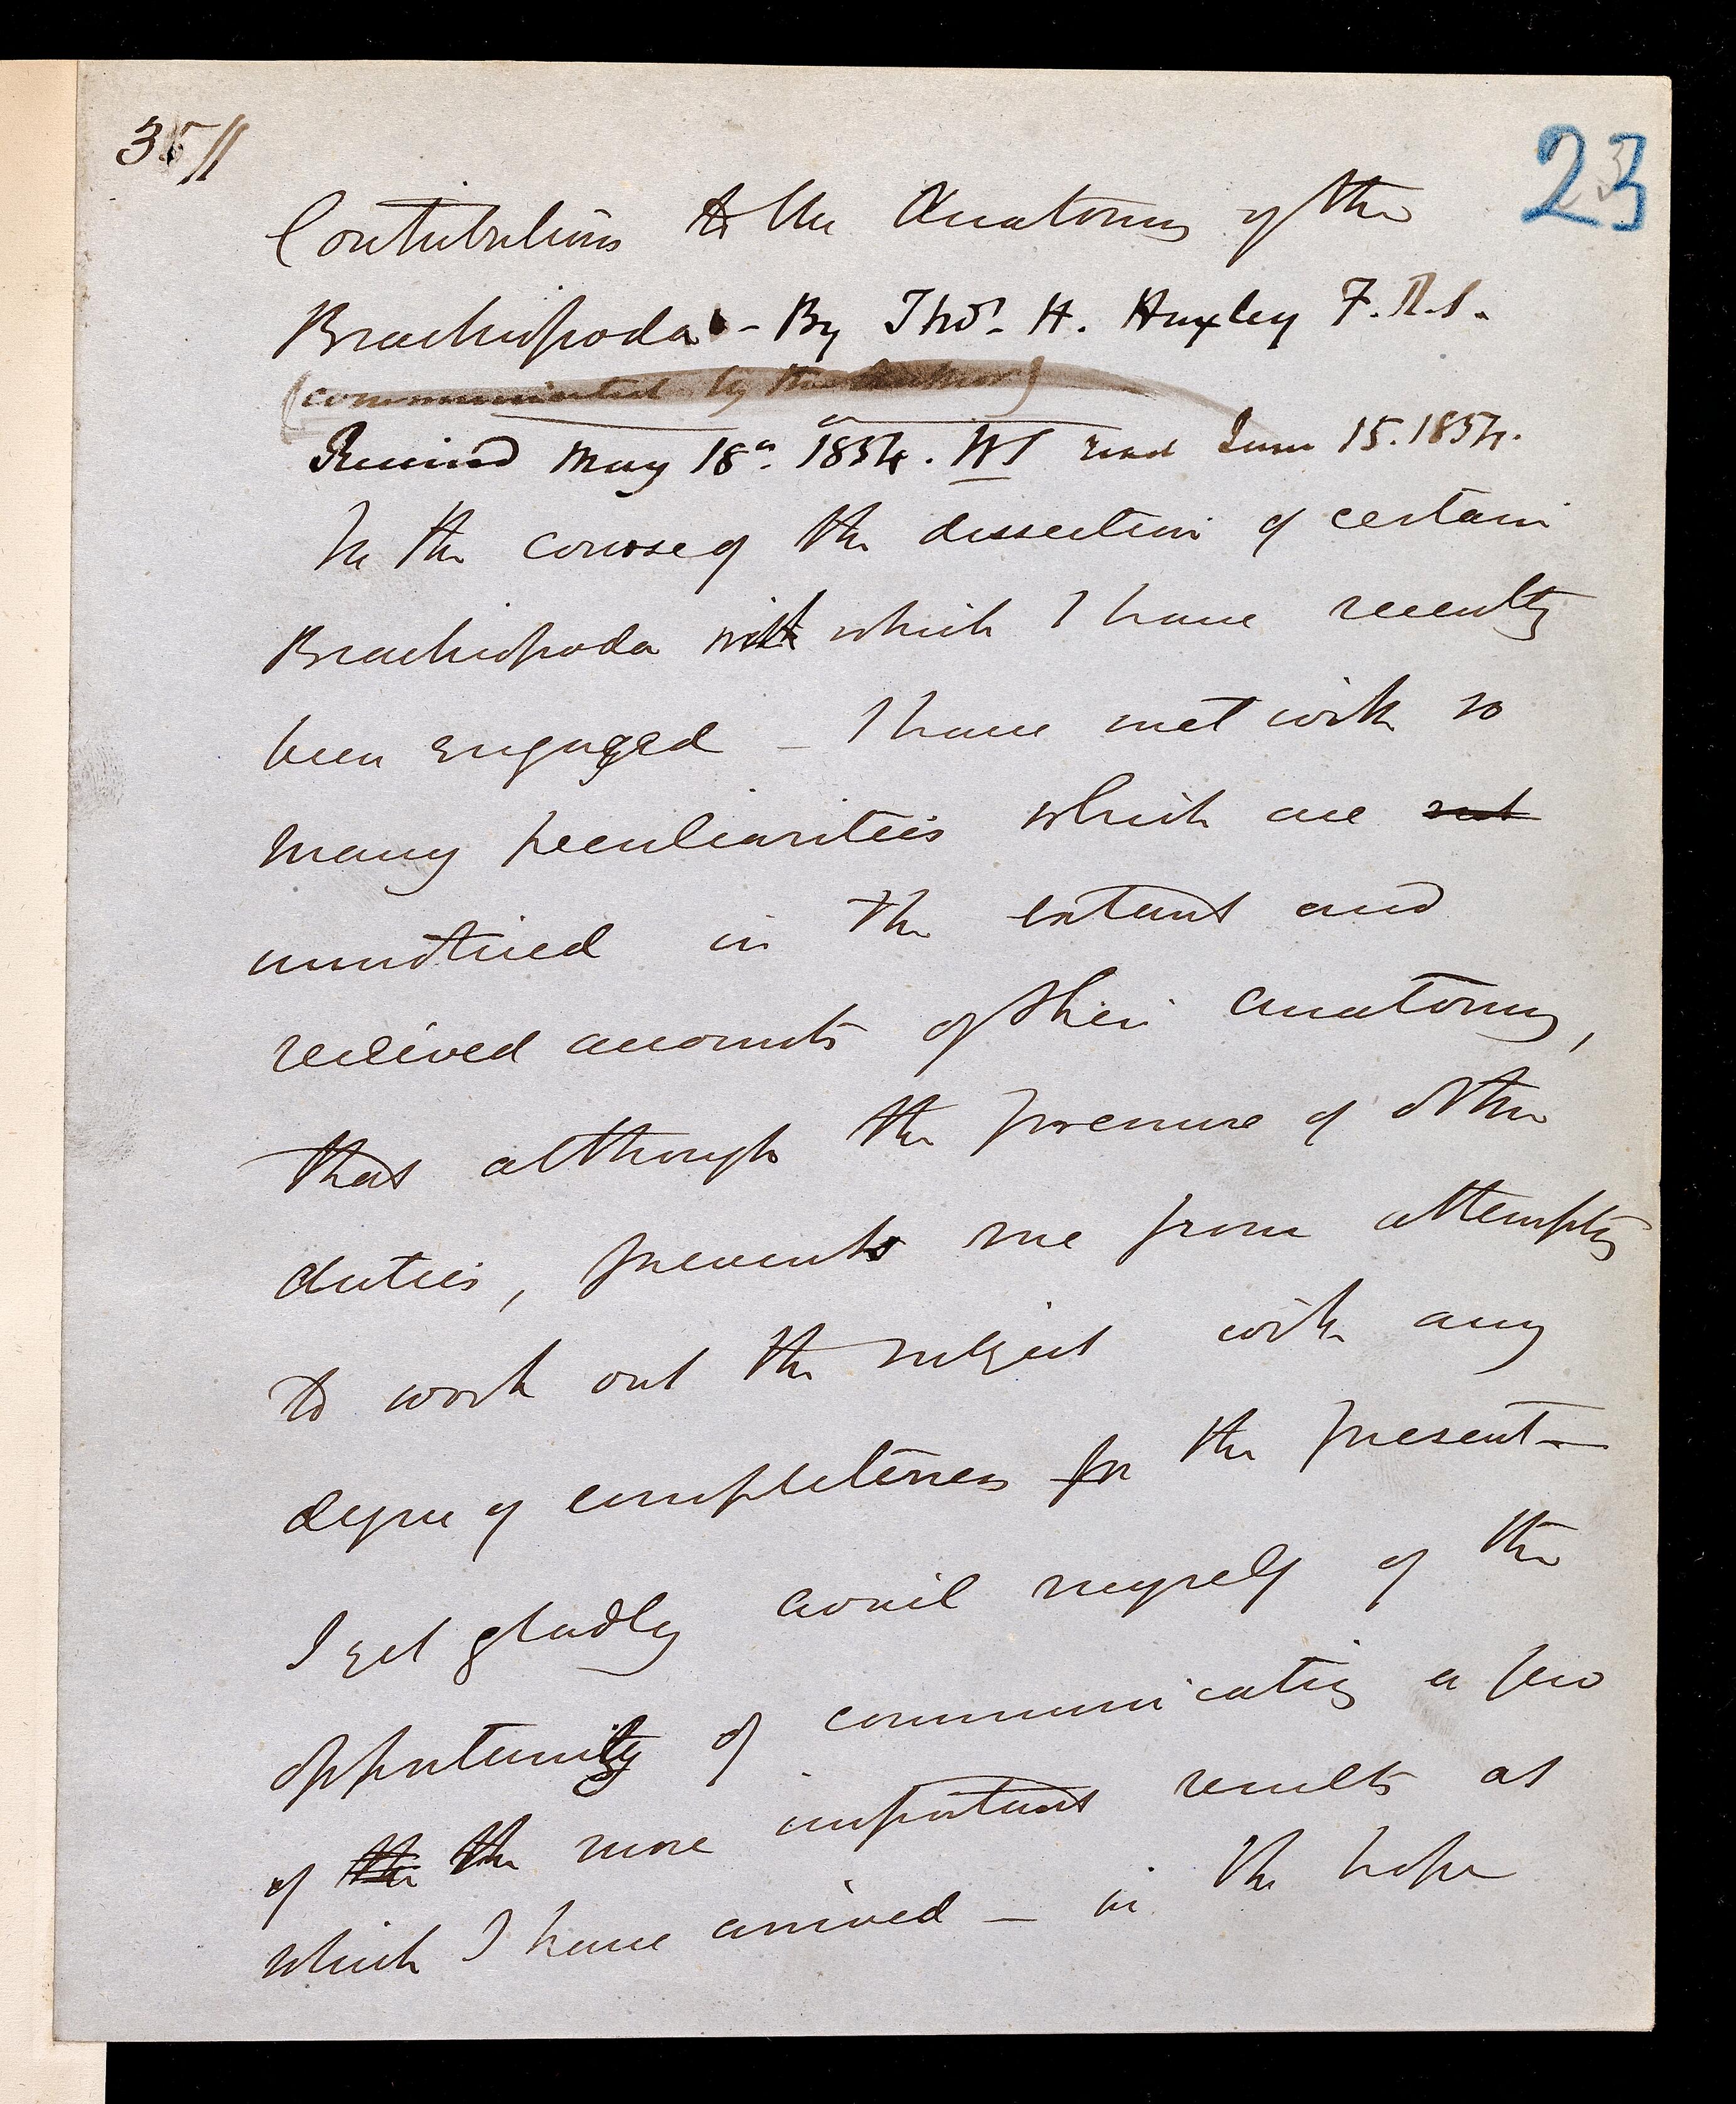 35/1
23
Contributions to the Anatomy of the
Brachiopoda - By Thos. H. Huxley F.R.S.
(communicated by the Author)
Received May 18th. 1854. WS read June 15. 1854.
In the course of the dissection of certain
Brachiopoda with which I have recently
been engaged - I have met with so
many peculiarities which are not
unnoticed in the extant and
received accounts of their anatomy,
that although the pressure of other
duties, prevents me from attempting
to work out the subject with any
degree of completeness for the present —
I yet gladly avail myself of the
opportunity of communicating a few
of the the more important results at
which I have arrived — in the hope